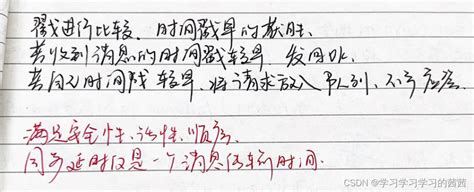 戳进行比较，时间戳早的获胜.
若收到消息的时间戳较早，发回OK.
若自己时间戳较早，将请求放入队列，不予应答.
满足安全性、活性、顺序.
同步延时仅是一个消息传输时间.
CSDN @学习学习学习的茜茜